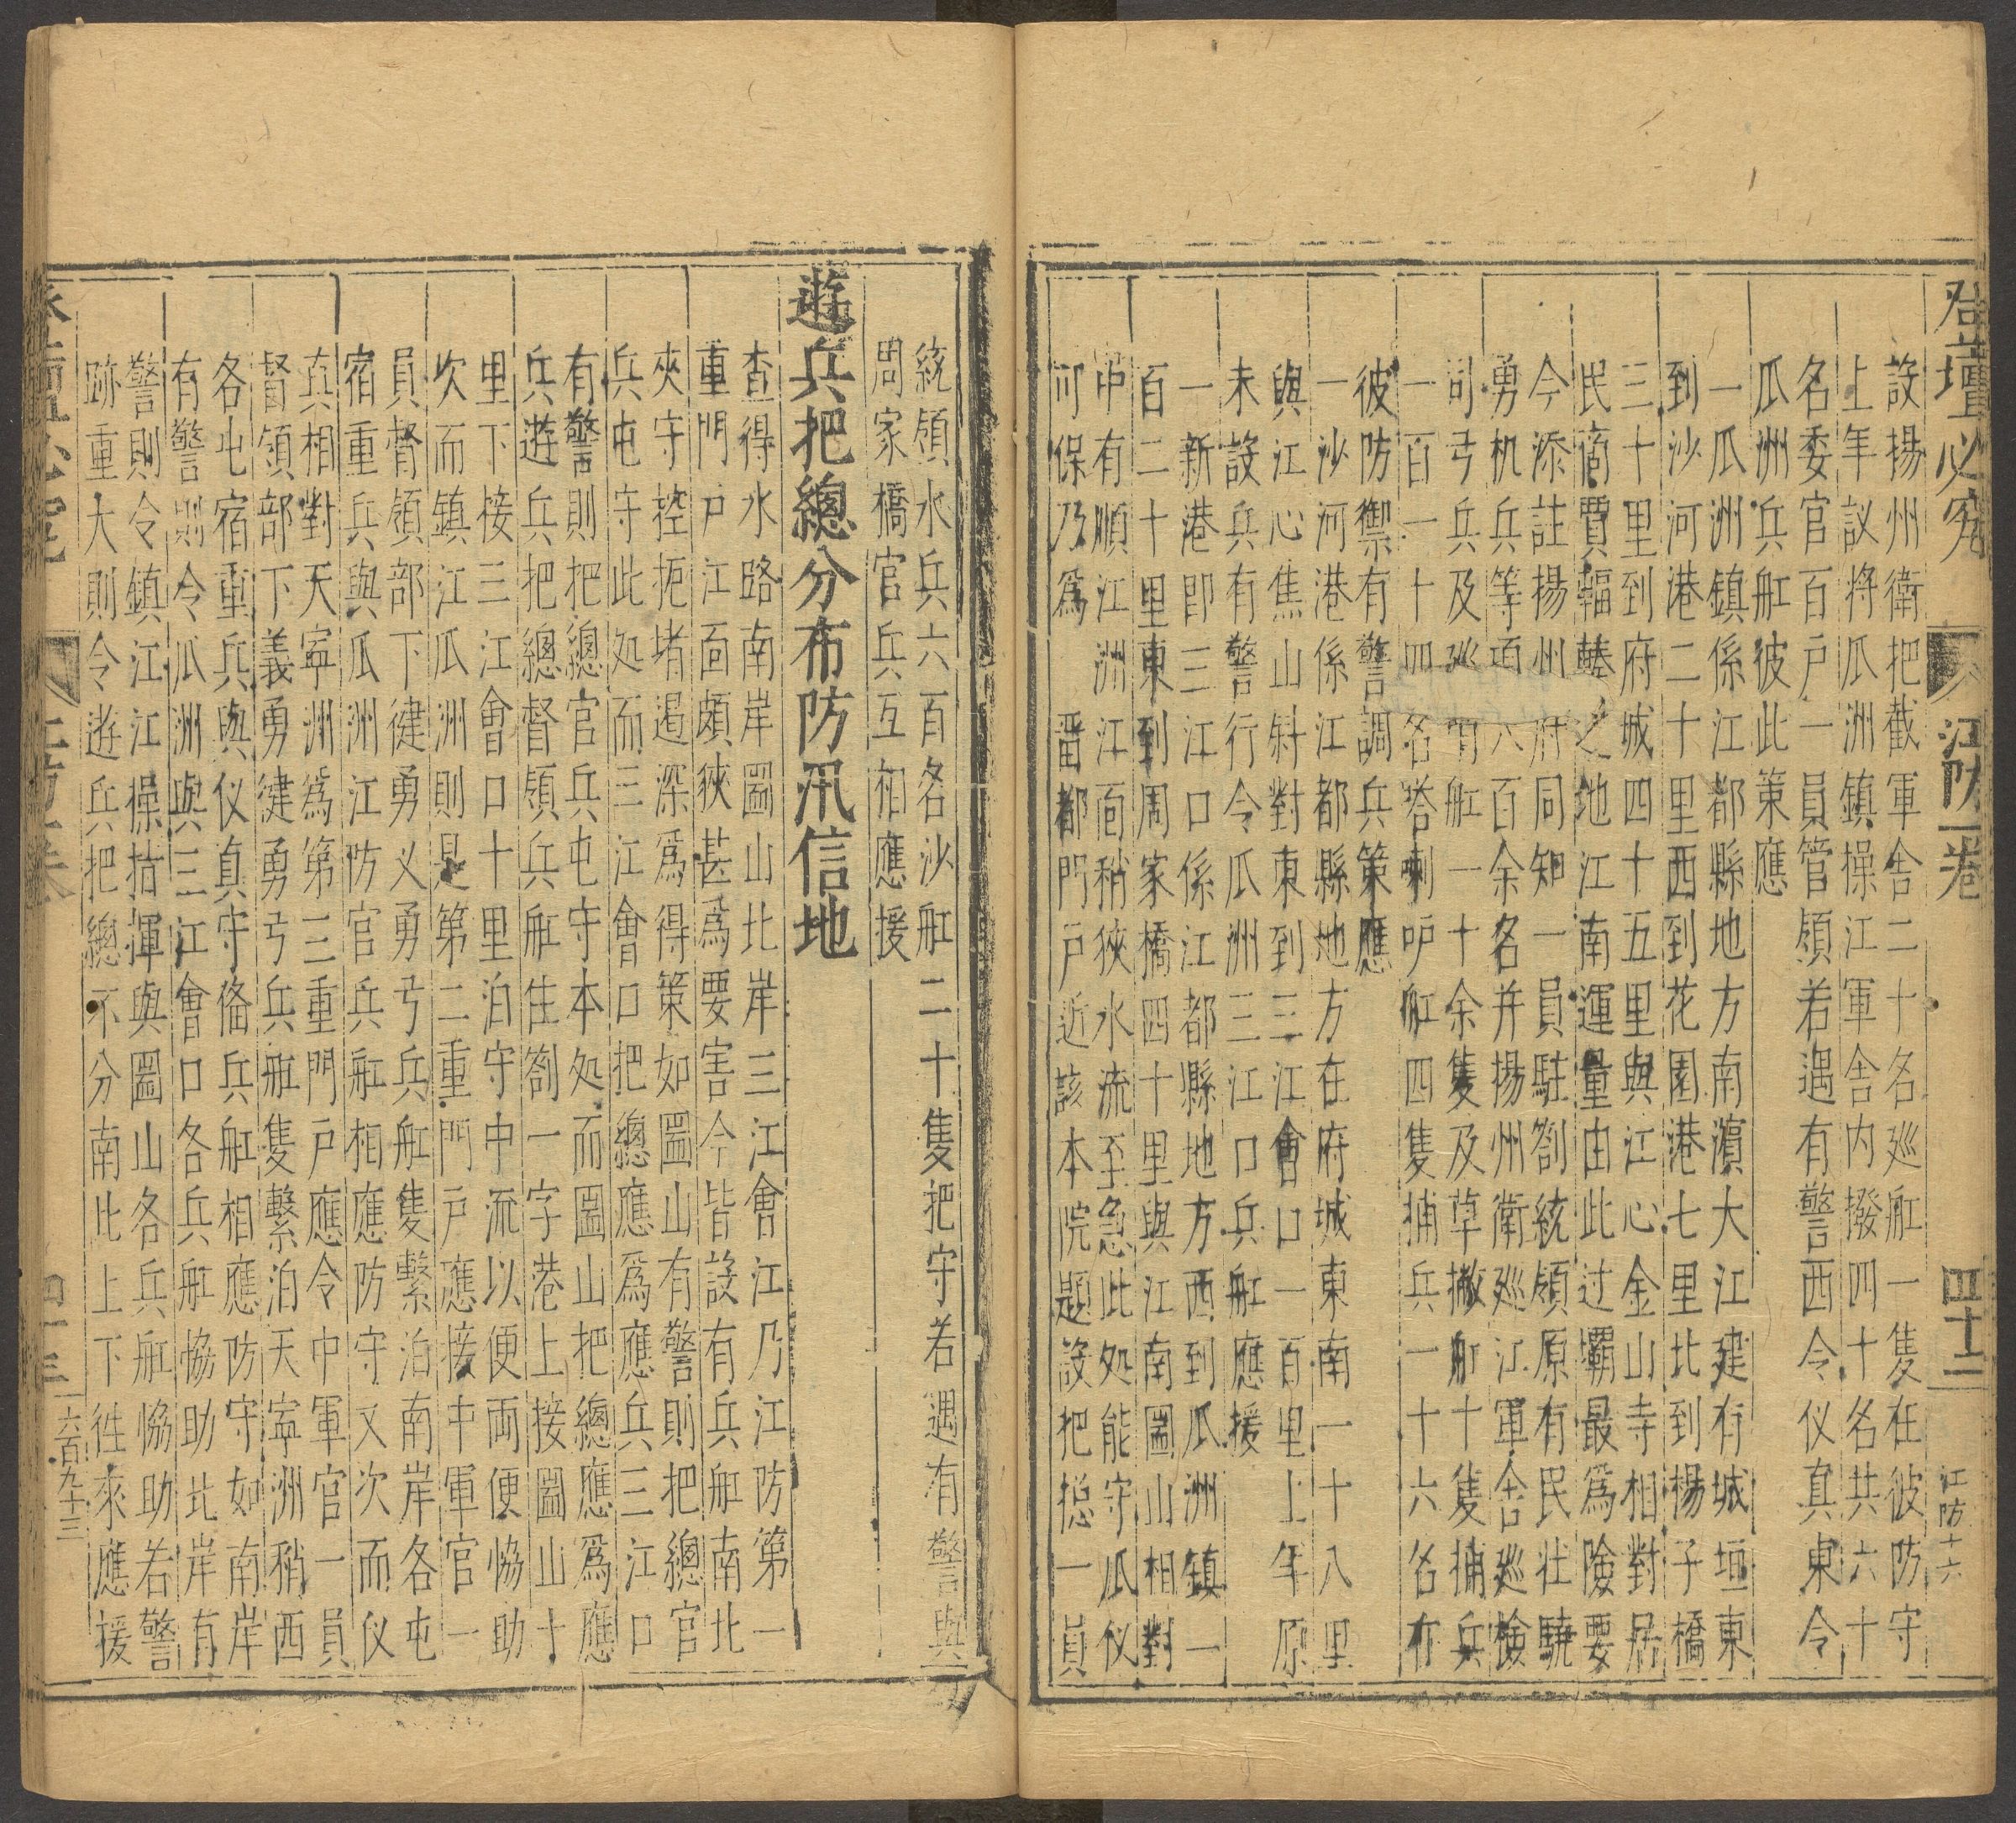 登壇必究 江防一卷 四十二 江防十六
設揚州衛把截軍舍二十名廵舡一隻在彼防守
上年議將瓜洲鎮操江軍舍内撥四十名共六十
名委官百戶一員管領若遇有警西令仪真東令
瓜洲兵舡彼此策應
一瓜洲鎮係江都縣地方南濵大江建有城垣東
到沙河港二十里西到花園港七里北到楊子橋
三十里到府城四十五里與江心金山寺相對居
民商賈輻輳之地江南運量由此过壩最為險要
今添註揚州府同知一員駐劄統領原有民壮驍
勇机兵等項六百余名并揚州衛廵江軍舍廵檢
司弓兵及廵哨舡一十余隻及草撇舡十隻捕兵
一百一十四名喀喇叭舡四隻捕兵一十六名在
彼防禦有警調兵策應
一沙河港係江都縣地方在府城東南一十八里
與江心焦山斜對東到三江會口一百里上年原
未設兵有警行令瓜洲三江口兵舡應援
一新港即三江口係江都縣地方西到瓜洲鎮一
百二十里東到周家橋四十里與江南圌山相對
中有順江洲江面稍狹水流至急此処能守瓜仪
可保乃為留都門戶近該本院題設把捴一員
統領水兵六百名沙舡二十隻把守若遇有警與
周家橋官兵互相應援
遊兵把總分布防汛信地
查得水路南岸圌山北岸三江會江乃江防第一
重門戶江面頗狹甚為要害今皆設有兵舡南北
夾守控扼堵遏深為得策如圌山有警則把總官
兵屯守此処而三江會口把總應為應兵三江口
有警則把總官兵屯守本処而圌山把總應為應
兵遊兵把總督領兵舡住劄一字港上接圌山十
里下接三江會口十里泊守中流以便両便協助
次而鎮江瓜洲則是第二重門戶應接中軍官一
員督領部下健勇义勇弓兵舡隻繫泊南岸各屯
宿重兵與瓜洲江防官兵舡相應防守又次而仪
真相對天寧洲為第三重門戶應令中軍官一員
督領部下義勇健勇弓兵舡隻繫泊天寧洲稍西
各屯宿重兵與仪真守俻兵舡相應防守如南岸
有警則令瓜洲與三江會口各兵舡協助北岸有
警則令鎮江江操指揮與圌山各兵舡協助若警
跡重大則令遊兵把總不分南北上下徃來應援
六百九十三